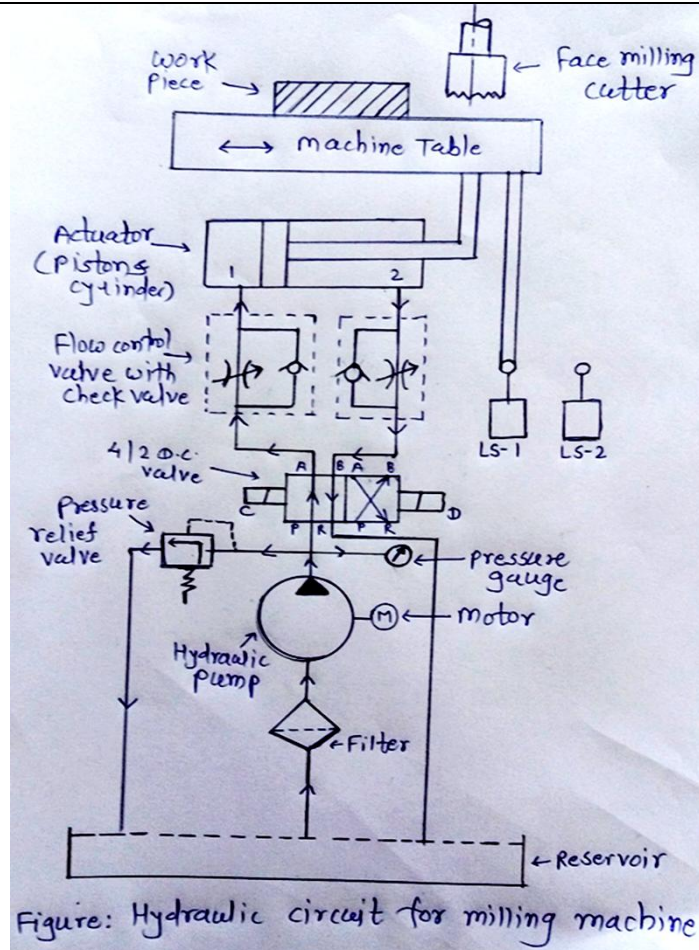 Work
Piece
Face milling
cutter
Machine Table
Actuator
(Piston &
cylinder)
1
2
Flow control
valve with
check valve
LS-1
LS-2
4/2 D.C.
valve
A
B
A
B
C
D
P
R
P
R
Pressure
relief
valve
Pressure
gauge
M
Motor
Hydraulic
Pump
Filter
Reservoir
Figure: Hydraulic circuit for milling machine